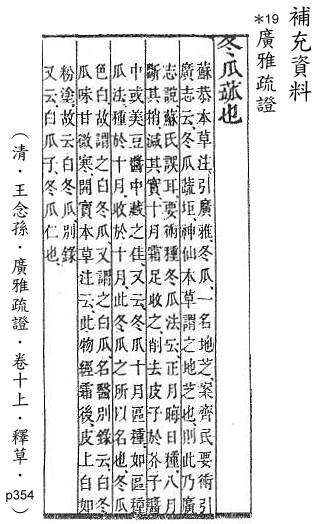 補充資料
*19 廣雅疏證
冬瓜也
蘇恭本草注、引廣雅、冬瓜、一名地芝、案齊民要術引
廣志云、冬瓜蔬垣、神仙本草謂之地芝也、則此乃廣
志說、蘇氏誤耳、要術種冬瓜法云、正月晦日種、八月
斷其梢、減其實、十月霜足收之、削去皮子、於芥子醬
中、或美豆醬中藏之佳、又云、冬瓜十月區種、如區種
瓜法、種於十月、收於十月、此冬瓜之所以名也、冬瓜
色白、故謂之白冬瓜、又謂之白瓜、名醫別錄云、白冬
瓜味甘微寒、開寶本草注云、此物經霜後、皮上白如
粉塗、故云白冬瓜、別錄
又云、白瓜子、冬瓜仁也、
(清・王念孫・廣雅疏證・卷十上・釋草・p354)